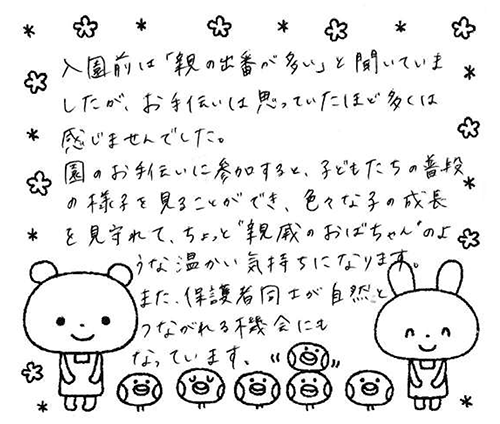 入園前は「親の出番が多い」と聞いていま
したが、お手伝いは思っていたほど多くは
感じませんでした。
園のお手伝いに参加すると、子どもたちの普段
の様子を見ることができ、色々な子の成長
を見守れて、ちょっと"親戚のおばちゃん"のよ
うな温かい気持ちになります。
また、保護者同士が自然と
つながれる機会にも
なっています。